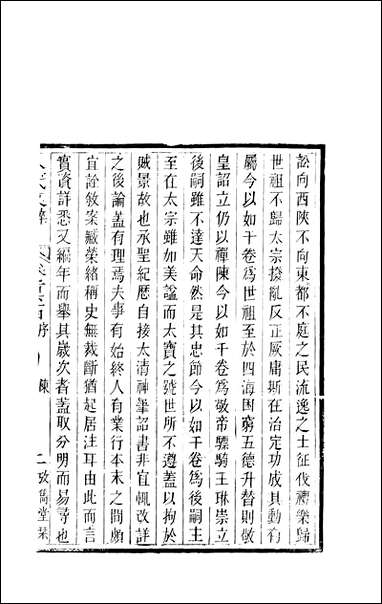 訟向西陝不向東都不庭之民流逸之士征伐禮樂歸
世祖不歸太宗撥亂反正厥庸斯在治定功成其勳有
屬今以如干卷爲世祖至於四海困窮五德升替則敬
皇詔立仍以禪陳今以如干卷爲敬帝驃騎王琳崇立
後嗣雖不達天命然是其忠節今以如干卷爲後嗣主
至在太宗雖如美諡而太寶之號世所不遵蓋以拘於
賊景故也承聖紀厯自接太清神筆詔書非宜輒改詳
之後論蓋有理焉夫事有始終人有業行本末之間頗
宜詮敘案臧榮緒稱史無裁斷猶起居注耳由此而言
實資詳悉又編年而舉其歲次者蓋取分明而易尋也
序 陳 二